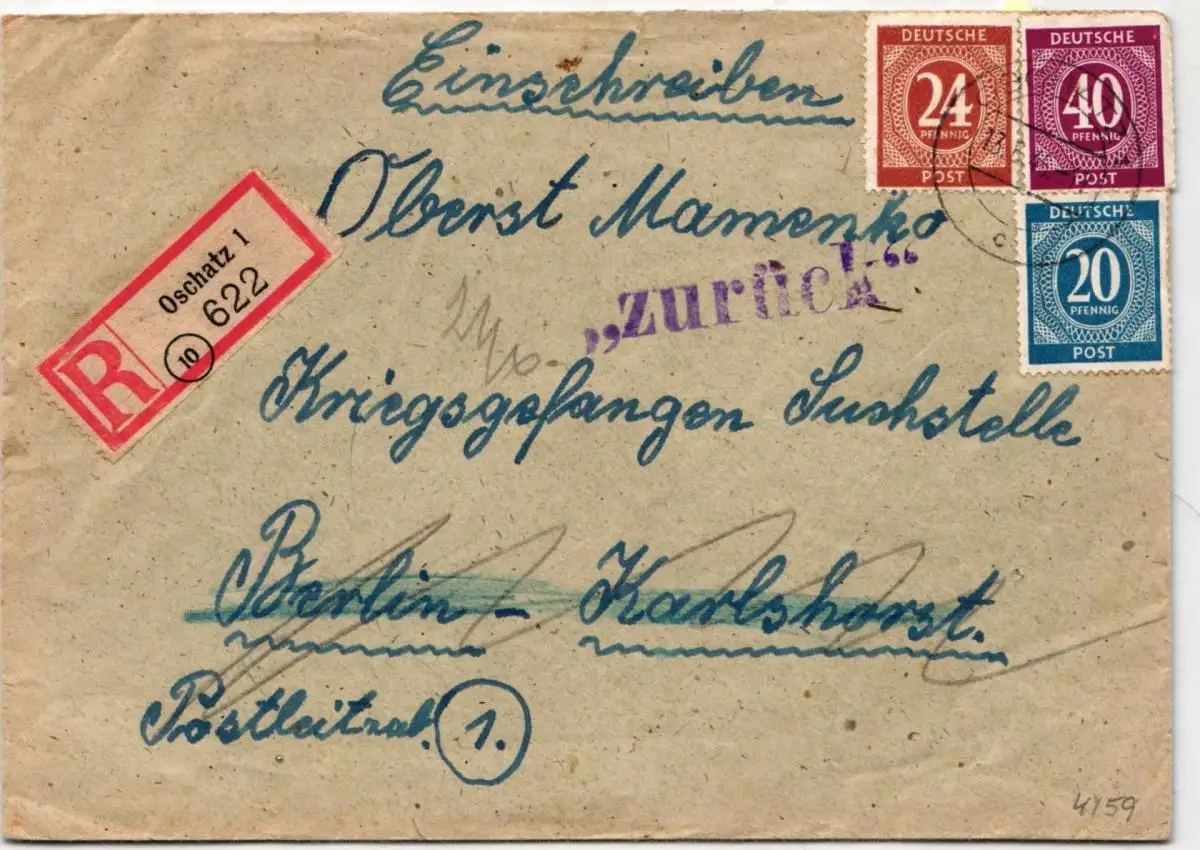 Einschreiben
DEUTSCHE
24
PFENNIG
POST
DEUTSCHE
40
PFENNIG
POST
DEUTSCHE
20
PFENNIG
POST
Oberst Mamenko
Oschatz 1
622
R
10
„zurück“
Kriegsgefangen Suchstelle
Berlin - Karlshorst.
Postleitzahl. 1.
4159